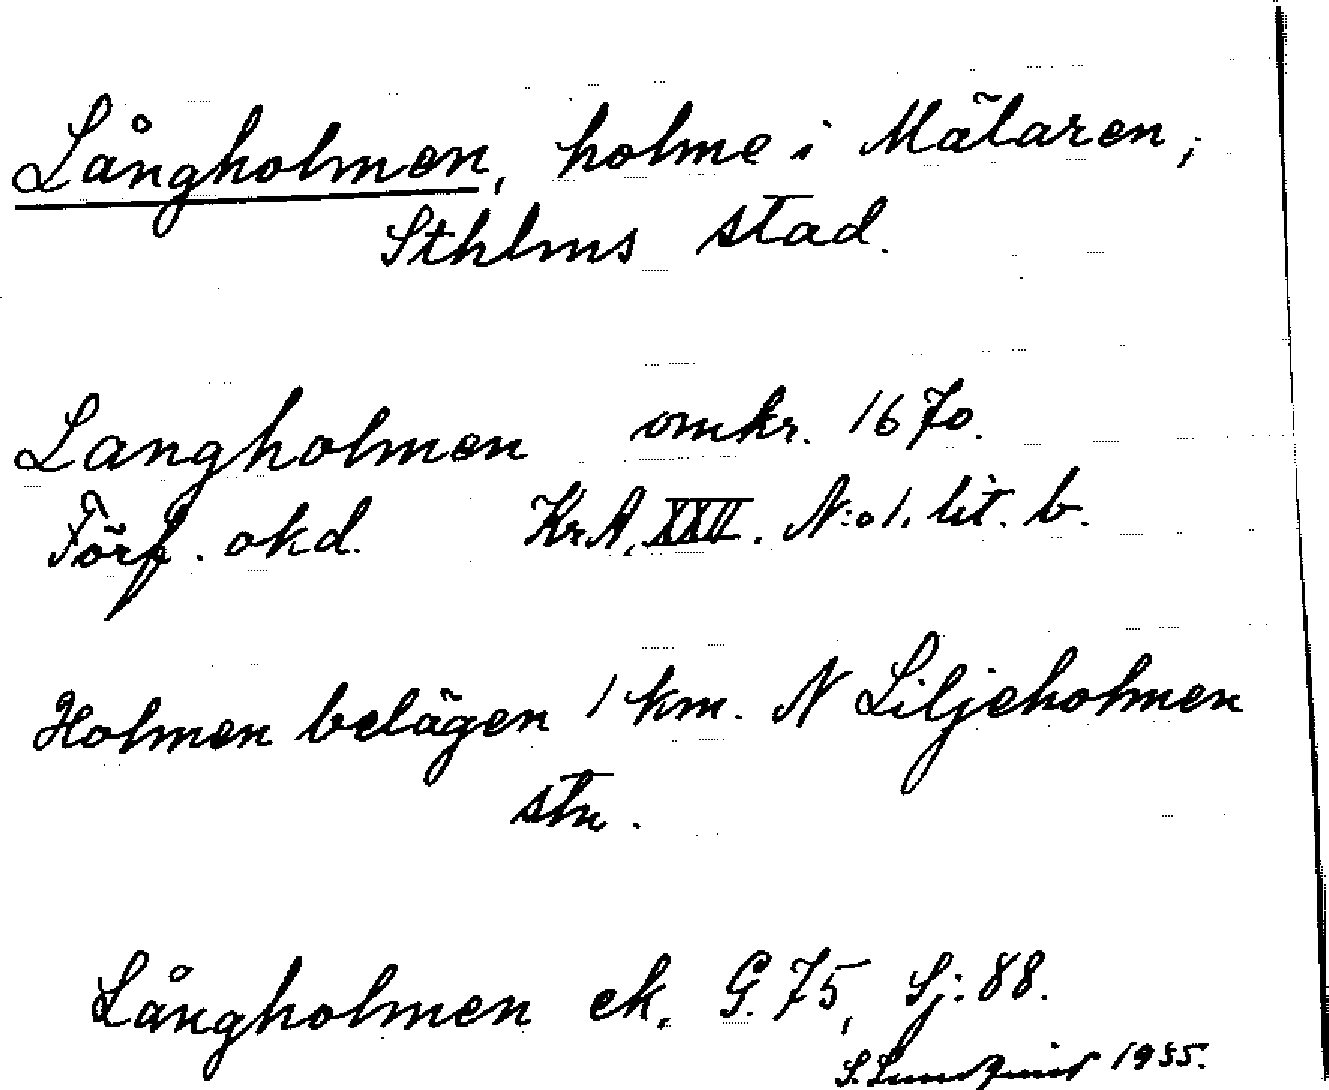 Långholmen, holme i Mälaren,
Sthlms stad.
Langholmen omkr. 1670.
Förf. okd. KrA, XXV. N:o 1. lit. b.
Holmen belägen 1 km. N Liljeholmen
stn.
Långholmen ek. G. 75, Sj: 88.
S. Lundquist 1935.